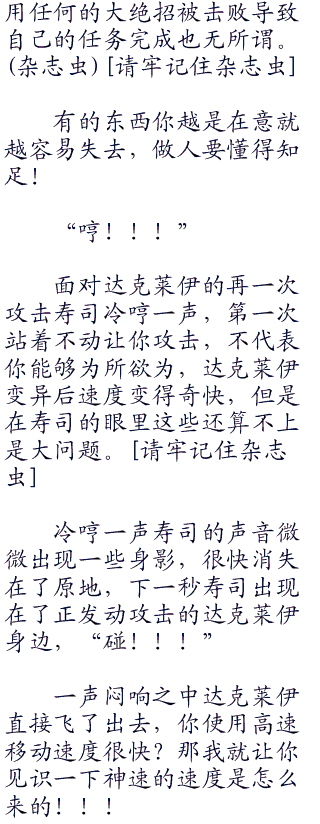 用任何的大绝招被击败导致
自己的任务完成也无所谓。
(杂志虫)[请牢记住杂志虫]
有的东西你越是在意就
越容易失去，做人要懂得知
足！
“哼！！！”
面对达克莱伊的再一次
攻击寿司冷哼一声，第一次
站着不动让你攻击，不代表
你能够为所欲为，达克莱伊
变异后速度变得奇快，但是
在寿司的眼里这些还算不上
是大问题。[请牢记住杂志
虫]
冷哼一声寿司的声音微
微出现一些身影，很快消失
在了原地，下一秒寿司出现
在了正发动攻击的达克莱伊
身边，“碰！！！”
一声闷响之中达克莱伊
直接飞了出去，你使用高速
移动速度很快？那我就让你
见识一下神速的速度是怎么
来的！！！